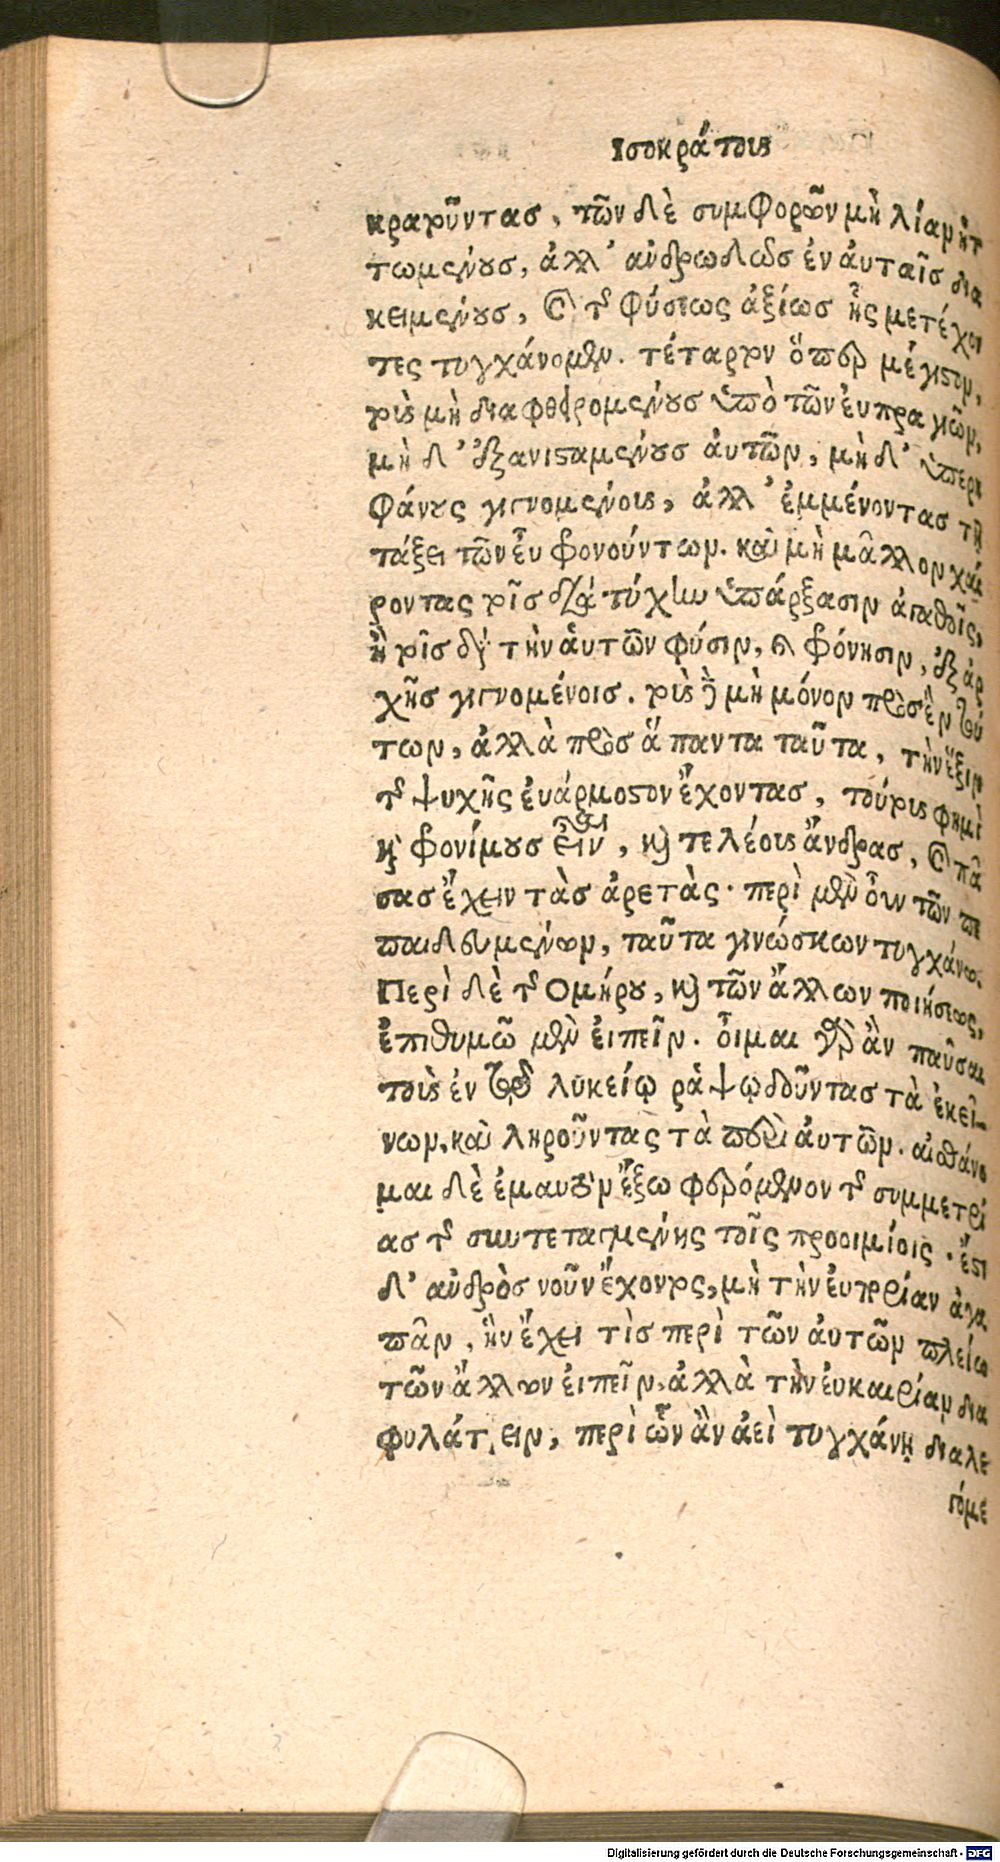 Ισοκράτους
κρατοῦντας, τῶν δὲ συμφορῶν μὴ λίαν ἡτ
τωμένους, ἀλλ' ἀνδρωδῶς ἐν ἀυταῖς δια
κειμένους, καὶ τῆς φύσεως ἀξίως ἧς μετέχον
τες τυγχάνομεν. τέταρτον ὅπερ μέγιστον,
τοὺς μὴ διαφθειρομένους ὑπὸ τῶν ἐυπραγιῶν,
μὴ δ' ἐξανισταμένους ἀυτῶν, μὴ δ' ὑπερη
φάνους γιγνομένους, ἀλλ' ἐμμένοντας τῇ
τάξει τῶν εὖ φρονούντων. καὶ μὴ μᾶλλον χαί
ροντας τοῖς διὰ τύχην ὑπάρξασιν ἀγαθοῖς,
ἢ τοῖς διὰ τὴν ἁυτῶν φύσιν, καὶ φρόνησιν, ἐξ ἀρ
χῆς γιγνομένοις. τοὺς δὲ μὴ μόνον πρὸς ἓν τού
των, ἀλλὰ πρὸς ἅπαντα ταῦτα, τὴν ἕξιν
τῆς ψυχῆς ἐυάρμοστον ἔχοντας, τούτους φημὶ
καὶ φρονίμους εἶναι, καὶ τελέους ἄνδρας, καὶ πά
σας ἔχειν τὰς ἀρετάς. περὶ μὲν οὖν τῶν πε
παιδευμένων, ταῦτα γινώσκων τυγχάνω.
Περὶ δὲ τῆς Ομήρου, καὶ τῶν ἄλλων ποιήσεως,
ἐπιθυμῶ μὲν ἐιπεῖν. οἶμαι γὰρ ἂν παῦσαι
τοὺς ἐν τῷ λυκείῳ ῥαψῳδοῦντας τὰ ἐκεί-
νων, καὶ ληροῦντας τὰ περὶ ἀυτῶν. αἰσθάνο
μαι δὲ ἐμαυτὸν ἔξω φερόμενον τῆς συμμετρί
ας τῆς συντεταγμένης τοῖς προοιμίοις. ἔστι
δ' ἀνδρὸς νοῦν ἔχοντος, μὴ τὴν ἐυπορίαν ἀγα
πᾶν, ἣν ἔχει τὶς περὶ τῶν ἀυτῶν πλείω
τῶν ἄλλων ἐιπεῖν, ἀλλὰ τὴν ἐυκαιρίαν δια
φυλάττειν, περὶ ὧν ἂν ἀεὶ τυγχάνῃ διαλε
γόμε
Digitalisierung gefördert durch die Deutsche Forschungsgemeinschaft - DFG